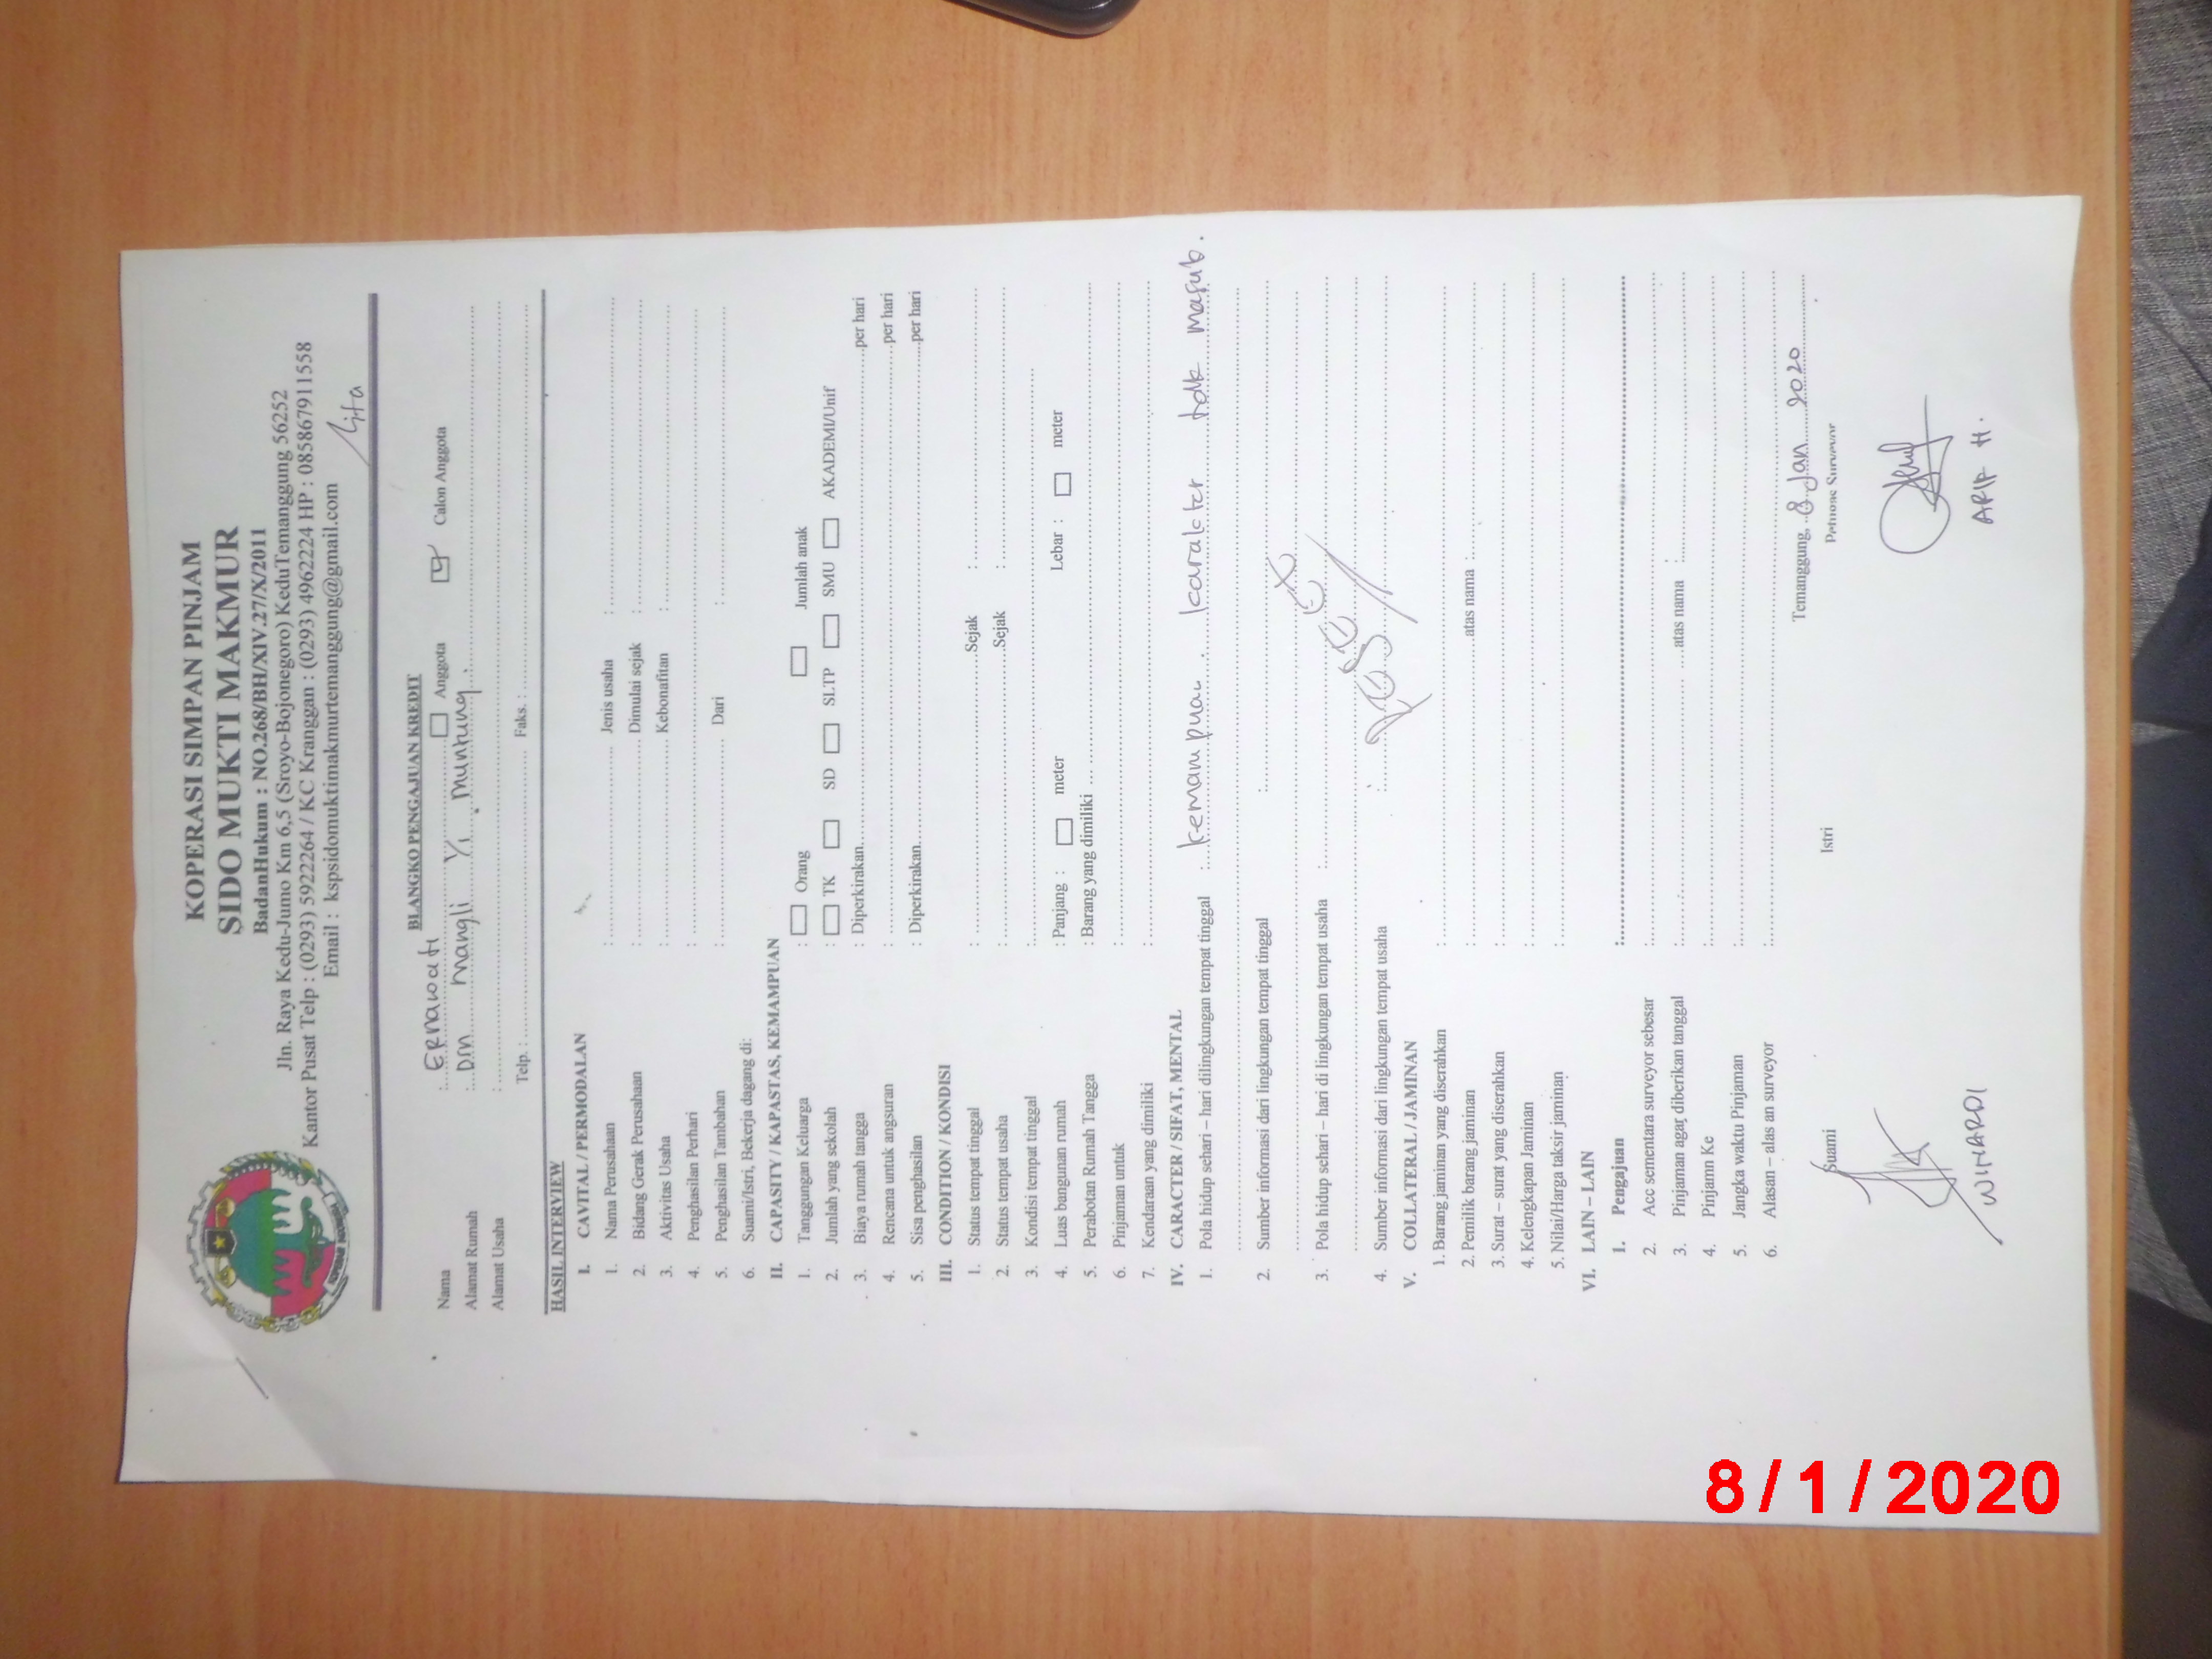 KOPERASI SIMPAN PINJAM
SIDO MUKTI MAKMUR
BadanHukum : NO.268/BH/XIV.27/X/2011
Jln. Raya Kedu-Jumo Km 6,5 (Sroyo-Bojonegoro) KeduTemanggung 56252
Kantor Pusat Telp : (0293) 5922264 / KC Kranggan : (0293) 4962224 HP : 085867911558
Email : kspsidomuktimakmurtemanggung@gmail.com
BLANGKO PENGAJUAN KREDIT
Nama : ERnawati Anggota Calon Anggota
Alamat Rumah : Dm mangli Yi . muntung .
Alamat Usaha :
Telp. : Faks. :
HASIL INTERVIEW
I. CAVITAL / PERMODALAN
1. Nama Perusahaan : Jenis usaha :
2. Bidang Gerak Perusahaan : Dimulai sejak :
3. Aktivitas Usaha : Kebonafitan :
4. Penghasilan Perhari :
5. Penghasilan Tambahan : Dari :
6. Suami/Istri, Bekerja dagang di:
II. CAPASITY / KAPASTAS, KEMAMPUAN
1. Tanggungan Keluarga : Orang Jumlah anak
2. Jumlah yang sekolah : TK SD SLTP SMU AKADEMI/Unif
3. Biaya rumah tangga : Diperkirakan per hari
4. Rencana untuk angsuran : per hari
5. Sisa penghasilan : Diperkirakan per hari
III. CONDITION / KONDISI
1. Status tempat tinggal : Sejak :
2. Status tempat usaha : Sejak :
3. Kondisi tempat tinggal :
4. Luas bangunan rumah : Panjang : meter Lebar : meter
5. Perabotan Rumah Tangga : Barang yang dimiliki
6. Pinjaman untuk :
7. Kendaraan yang dimiliki :
IV. CARACTER / SIFAT, MENTAL
1. Pola hidup sehari – hari dilingkungan tempat tinggal : kemampuan . karakter tdk masuk .
2. Sumber informasi dari lingkungan tempat tinggal :
3. Pola hidup sehari – hari di lingkungan tempat usaha :
4. Sumber informasi dari lingkungan tempat usaha :
V. COLLATERAL / JAMINAN
1. Barang jaminan yang diserahkan :
2. Pemilik barang jaminan : atas nama :
3. Surat – surat yang diserahkan :
4. Kelengkapan Jaminan :
5. Nilai/Harga taksir jaminan :
VI. LAIN – LAIN
1. Pengajuan :
2. Acc sementara surveyor sebesar :
3. Pinjaman agar diberikan tanggal : atas nama :
4. Pinjamn Ke :
5. Jangka waktu Pinjaman :
6. Alasan – alas an surveyor :
Temanggung, 8 Jan 2020
Suami Istri Petugas Surveyor
WINARDI ARIF H.
8/1/2020